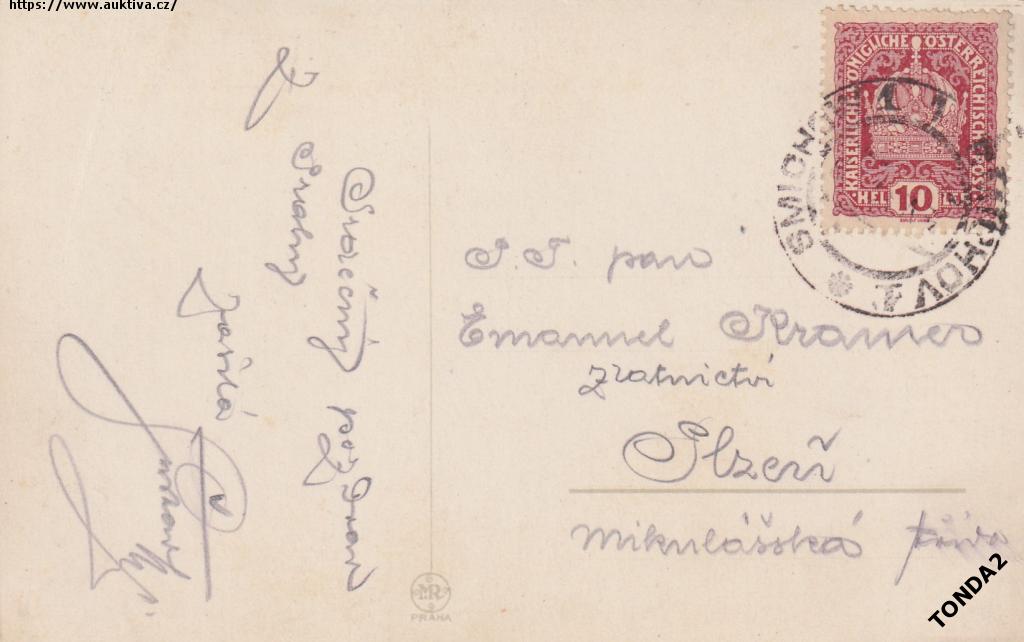 https://www.auktiva.cz/
KAISERLICHE KÖNIGLICHE ÖSTERREICHISCHE POST
10
HEL
SMICHOV 1
Srdečný pozdrav
z
Prahy
zasílá
P. T. pan
Emanuel Kramer
zlatnictví
Plzeň
Mikulášská třída
MR
PRAHA
TONDA2